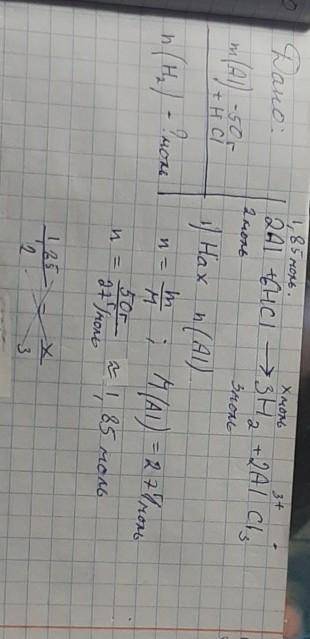 Дано:
m(Al) - 50г
+ HCl
n(H₂) - ? моль
1,85 моль. x моль
2Al + 6HCl → 3H₂ + 2Al³⁺Cl₃
2 моль 3 моль
1) Нах n(Al)
n = m/M ; M(Al) = 27 г/моль
n = 50г/27 г/моль ≈ 1,85 моль
1,85/2 = x/3